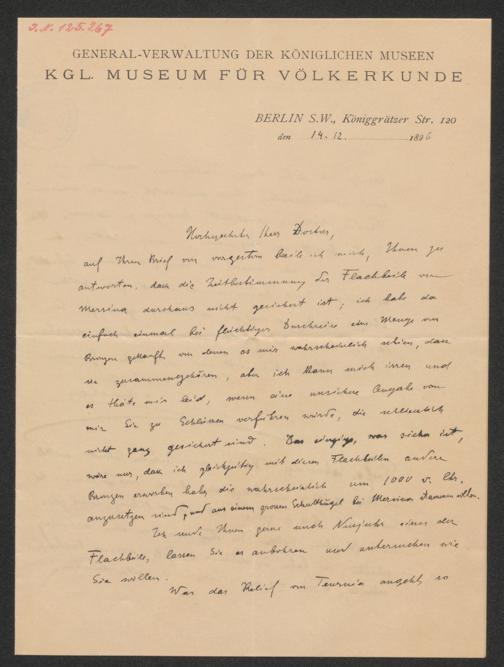 J.N. 125.267
GENERAL-VERWALTUNG DER KÖNIGLICHEN MUSEEN
KGL. MUSEUM FÜR VÖLKERKUNDE
BERLIN S.W., Königgrätzer Str. 120
den 14.12. 1896
Hochgeehrter Herr Doctor,
auf Ihren Brief von vorgestern beeile ich mich, Ihnen zu
antworten, dass die Zeitbestimmung der Flachbeile von
Mersina durchaus nicht gesichert ist; ich habe da
einfach einmal bei flüchtiger Durchreise eine Menge von
Bronzen gekauft von denen es mir wahrscheinlich schien, dass
sie zusammengehören, aber ich kann mich irren und
es thäte mir leid, wenn eine unsichere Angabe von
mir Sie zu Schlüssen verführen würde, die schliesslich
nicht ganz gesichert sind. Das einzige, was sicher ist,
wäre nur, dass ich gleichzeitig mit diesen Flachbeilen andere
Bronzen erworben habe, die wahrscheinlich um 1000 v. Chr.
anzusetzen sind, und aus einem grossen Schutthügel bei Mersina
Ich sende Ihnen gerne nach Neujahr eines der
Flachbeile, lassen Sie es anbohren und untersuchen wie
Sie wollen.
Was das Relief von Teurnia angeht, so